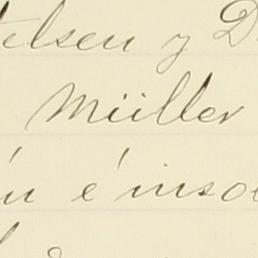 telsen y D
Müller
ú é insol